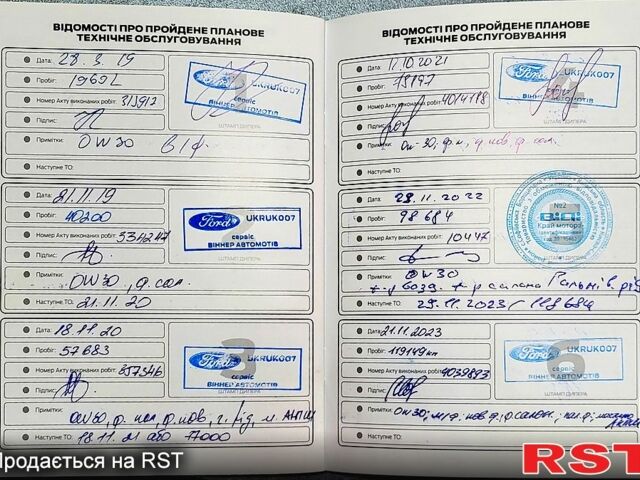 ВІДОМОСТІ ПРО ПРОЙДЕНЕ ПЛАНОВЕ
ТЕХНІЧНЕ ОБСЛУГОВУВАННЯ
Дата: 28.3.19
Пробіг:
Номер Акту виконаних робіт: 313912
Підпис:
Примітки: OW30 в/ф.
Наступне ТО:
Ford UKRUK007
сервіс
ВІННЕР АВТОМОТІВ
ШТАМП ДИЛЕРА
Дата: 21.11.19
Пробіг: 40200
Номер Акту виконаних робіт: 534247
Підпис:
Примітки: OW30, ф. сал.
Наступне ТО: 21.11.20
Ford UKRUK007
сервіс
ВІННЕР АВТОМОТІВ
ШТАМП ДИЛЕРА
Дата: 18.11.20
Пробіг: 57683
Номер Акту виконаних робіт: 857346
Підпис:
Примітки: OW30, ф. сал, ф. пов,
Наступне ТО: 18.11. або 17000
3
Ford UKRUK007
сервіс
ВІННЕР АВТОМОТІВ
ШТАМП ДИЛЕРА
ВІДОМОСТІ ПРО ПРОЙДЕНЕ ПЛАНОВЕ
ТЕХНІЧНЕ ОБСЛУГОВУВАННЯ
Дата: 11.10.2021
Пробіг: 78197
Номер Акту виконаних робіт: 4014118
Підпис:
Примітки: Ow-30. ф.м, ф. пов. ф. сал.
Наступне ТО:
4
Ford UKRUK007
сервіс
ВІННЕР АВТОМОТІВ
ШТАМП ДИЛЕРА
Дата: 29.11.2022
Пробіг: 98684
Номер Акту виконаних робіт: 10447
Підпис:
Примітки: OW30
ф-р возд. ф-р салона Гальмів. рід
Наступне ТО: 29.11.2023 / 118684
№2
Край мотора
ШТАМП ДИЛЕРА
Дата: 21.11.2023
Пробіг: 119149км
Номер Акту виконаних робіт: 4039893
Підпис:
Примітки: OW30; м/ф. пов ф; ф. салон.
Наступне ТО:
6
Ford UKRUK007
сервіс
ВІННЕР АВТОМОТІВ
ШТАМП ДИЛЕРА
Продається на RST
RST